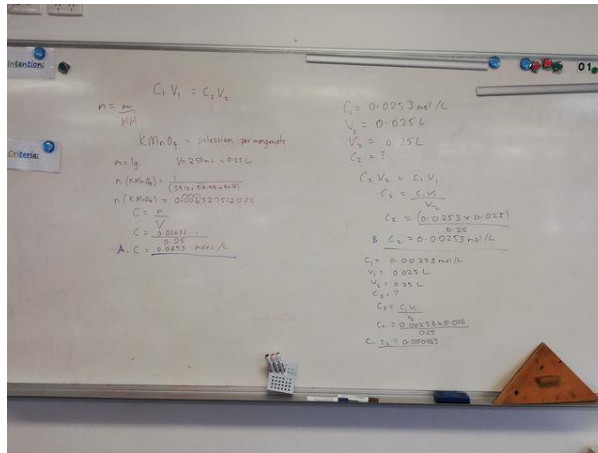 Intention:
01.
Criteria:
C₁V₁ = C₂V₂
n = m
MM
KMnO₄ = potassium permanganate
m = 1g
n (KMnO₄) = 1
n (KMnO₄) = 0.006327512022
C = n
V
C = 0.00632
0.25
A. C = 0.0253 moles/L
C₁ = 0.0253 mol/L
V₁ = 0.025L
V₂ = 0.25L
C₂ = ?
C₂V₂ = C₁V₁
C₂ = C₁V₁
V₂
C₂ = (0.0253 x 0.025)
0.25
B. C₂ = 0.00253 mol/L
C₁ = 0.00253 mol/L
V₁ = 0.025L
V₂ = 0.25L
C₂ = ?
C₂ = C₁V₁
V₂
C₂ = 0.00253 x 0.025
0.25
C. C₂ = 0.000253